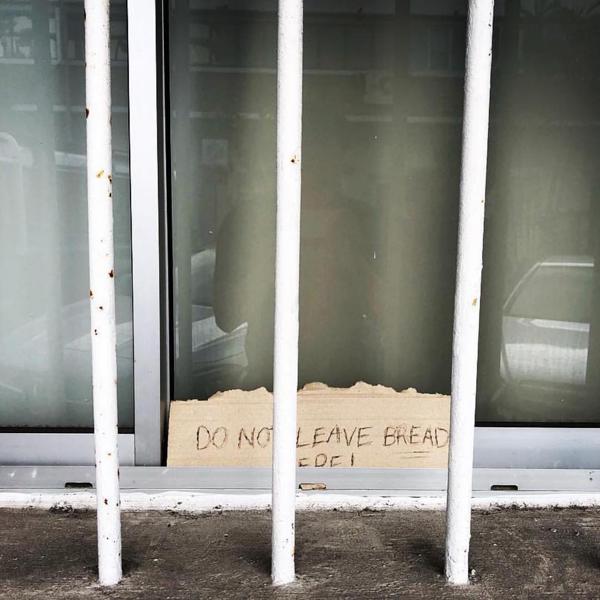 DO NOT LEAVE BREAD
ERE!